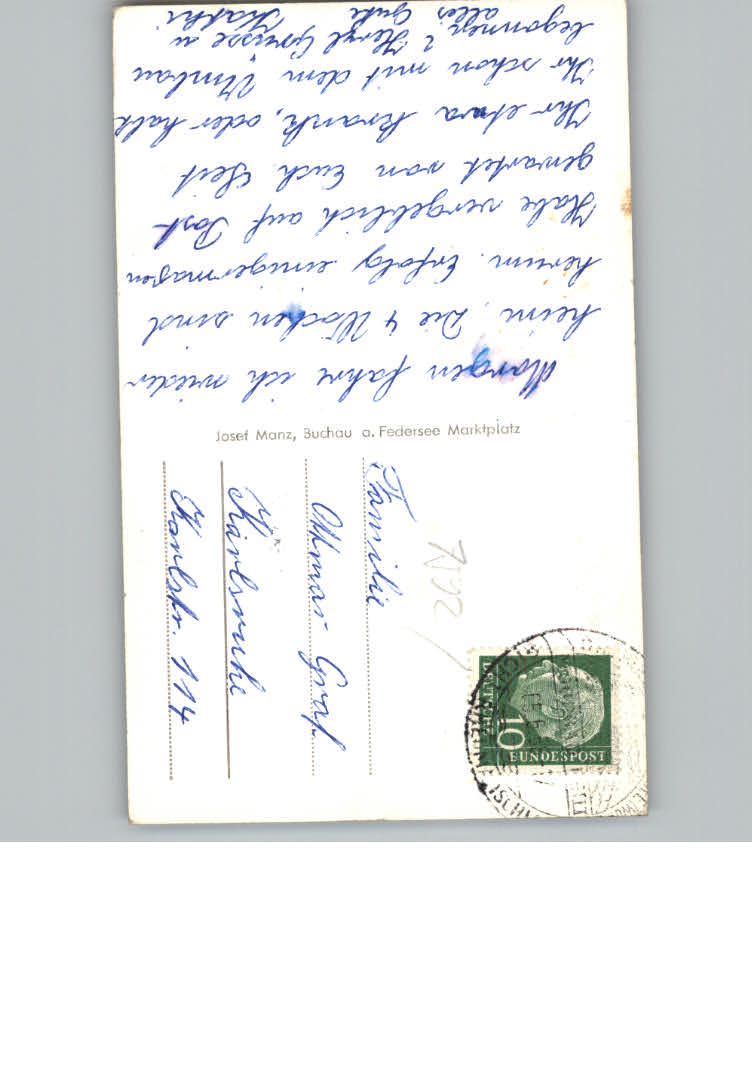 Morgen fahre ich wieder
heim. Die 4 Wochen sind
herum. Erfolg einigermasen
Habe vergeblich auf Post
gewartet von Euch. Seit
Ihr etwa krank, oder habt
Ihr schon mit dem Umbau
begonnen? Herzl Grüsse u
alles Gute
Kathi
Josef Manz, Buchau a. Federsee Marktplatz
Familie
Othmar Graf
Karlsruhe
Karlstr. 114
10
DEUTSCHE
BUNDESPOST